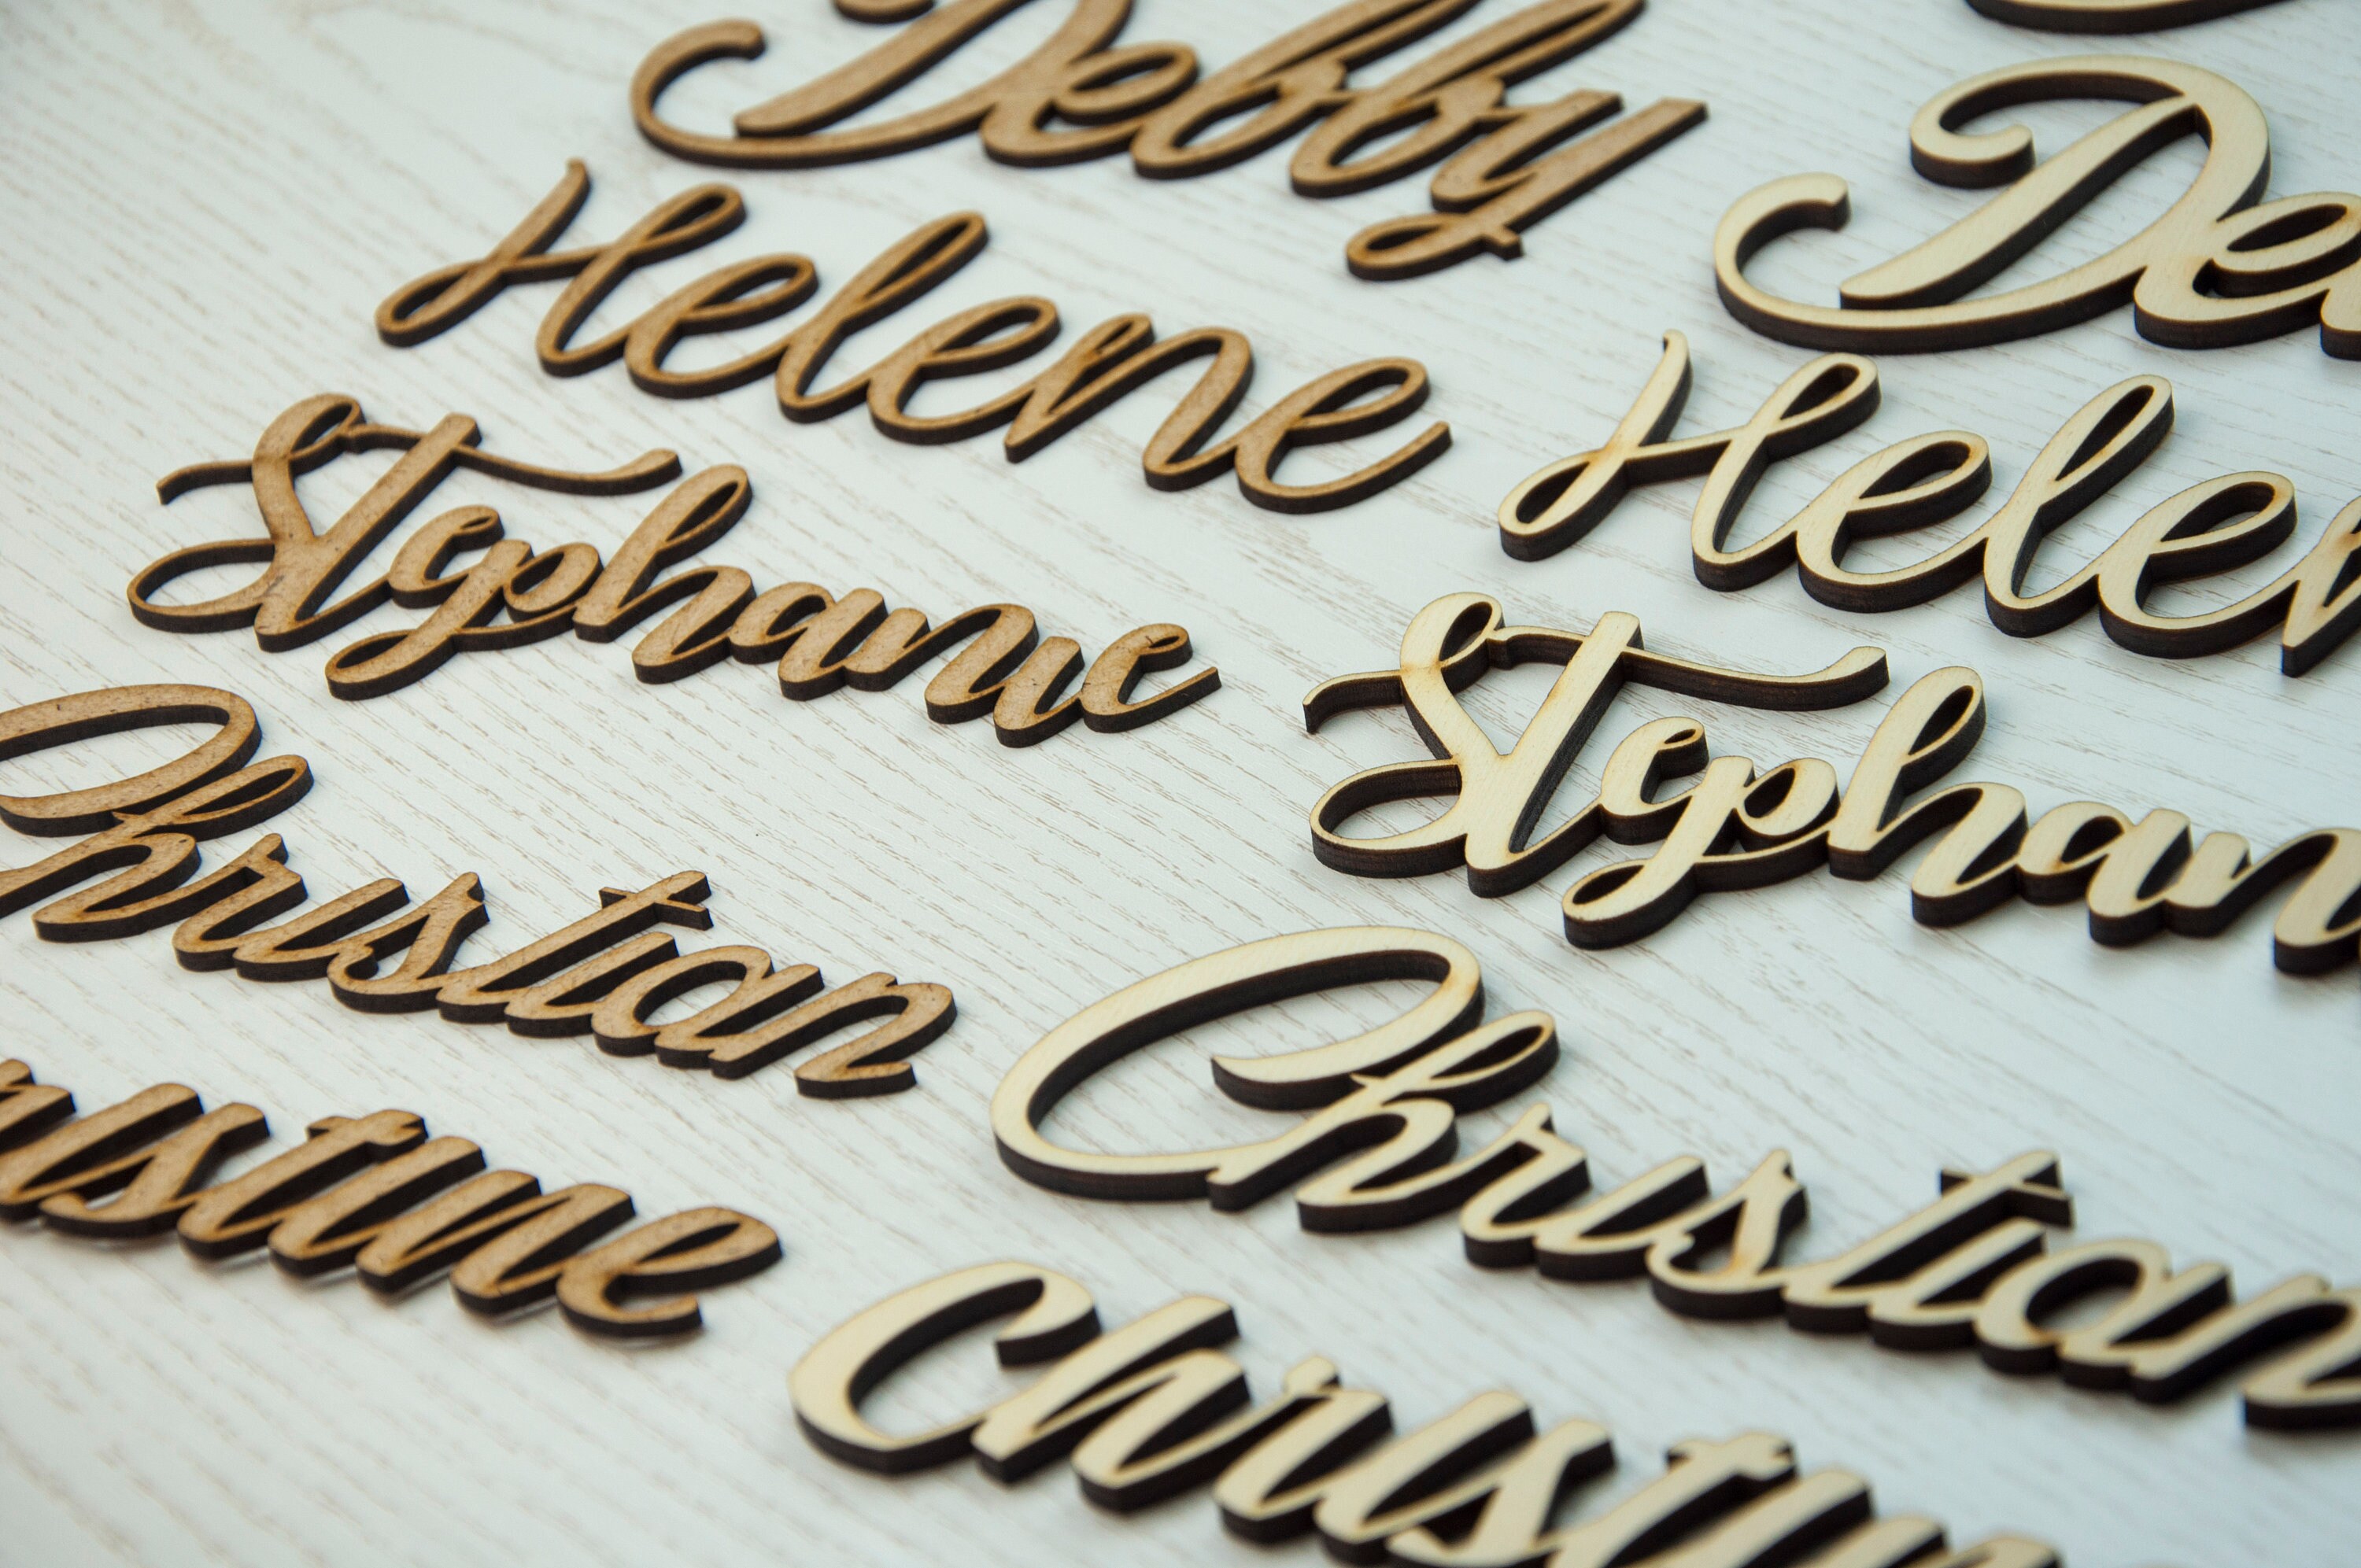 Debby
Helene
Stephanie
Christian
ristine
De
Helen
Stephan
Christian
Christin